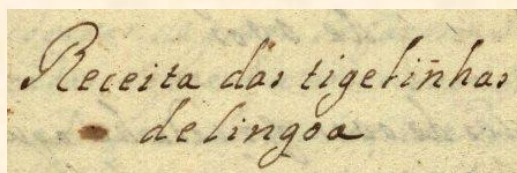 Receita das tigeliñhas
de lingoa